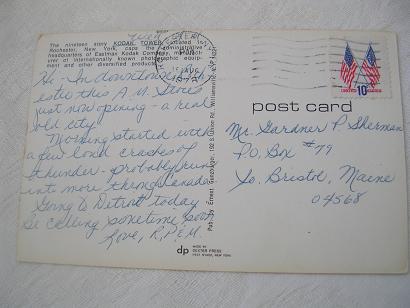 The nineteen story KODAK TOWER situated in
Rochester, New York, caps the administrative
headquarters of Eastman Kodak Company, manufact-
urer of internationally known photographic equip-
ment and other diversified products.
AUG
UNITED STATES
10c
post card
Hi - In downtown
this A.M. Stores
just now opening - a real
old city!
Morning started with
a few loud crashes of
thunder - probably run
into more through Canada.
Going to Detroit today
Be calling sometime soon
Love, R, P, E, M.
Mr. Gardner P. Sherman
P.O. Box #79
So. Bristol, Maine
04568
Pub. by Ernest Gunzburger, 192 S Union Rd. Williamsville, N.Y. 14221
dp
MADE BY
DEXTER PRESS
WEST NYACK, NEW YORK